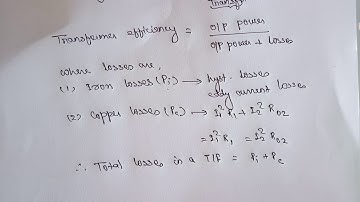 Transformer efficiency = O/P power / O/P power + Losses
where losses are,
(1) Iron losses (Pi) → hyst. losses
eddy current losses
(2) Copper losses (Pc) → I₁² R₁ + I₂² R02
= I₁² R₁ = I₂² R02
∴ Total losses in a T/F = Pi + Pc